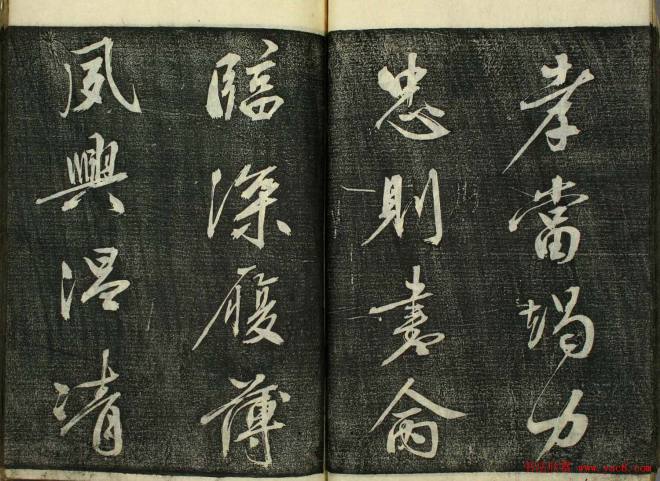 孝當竭力
忠則盡命
臨深履薄
夙興温清
书法欣赏 www.yac8.com